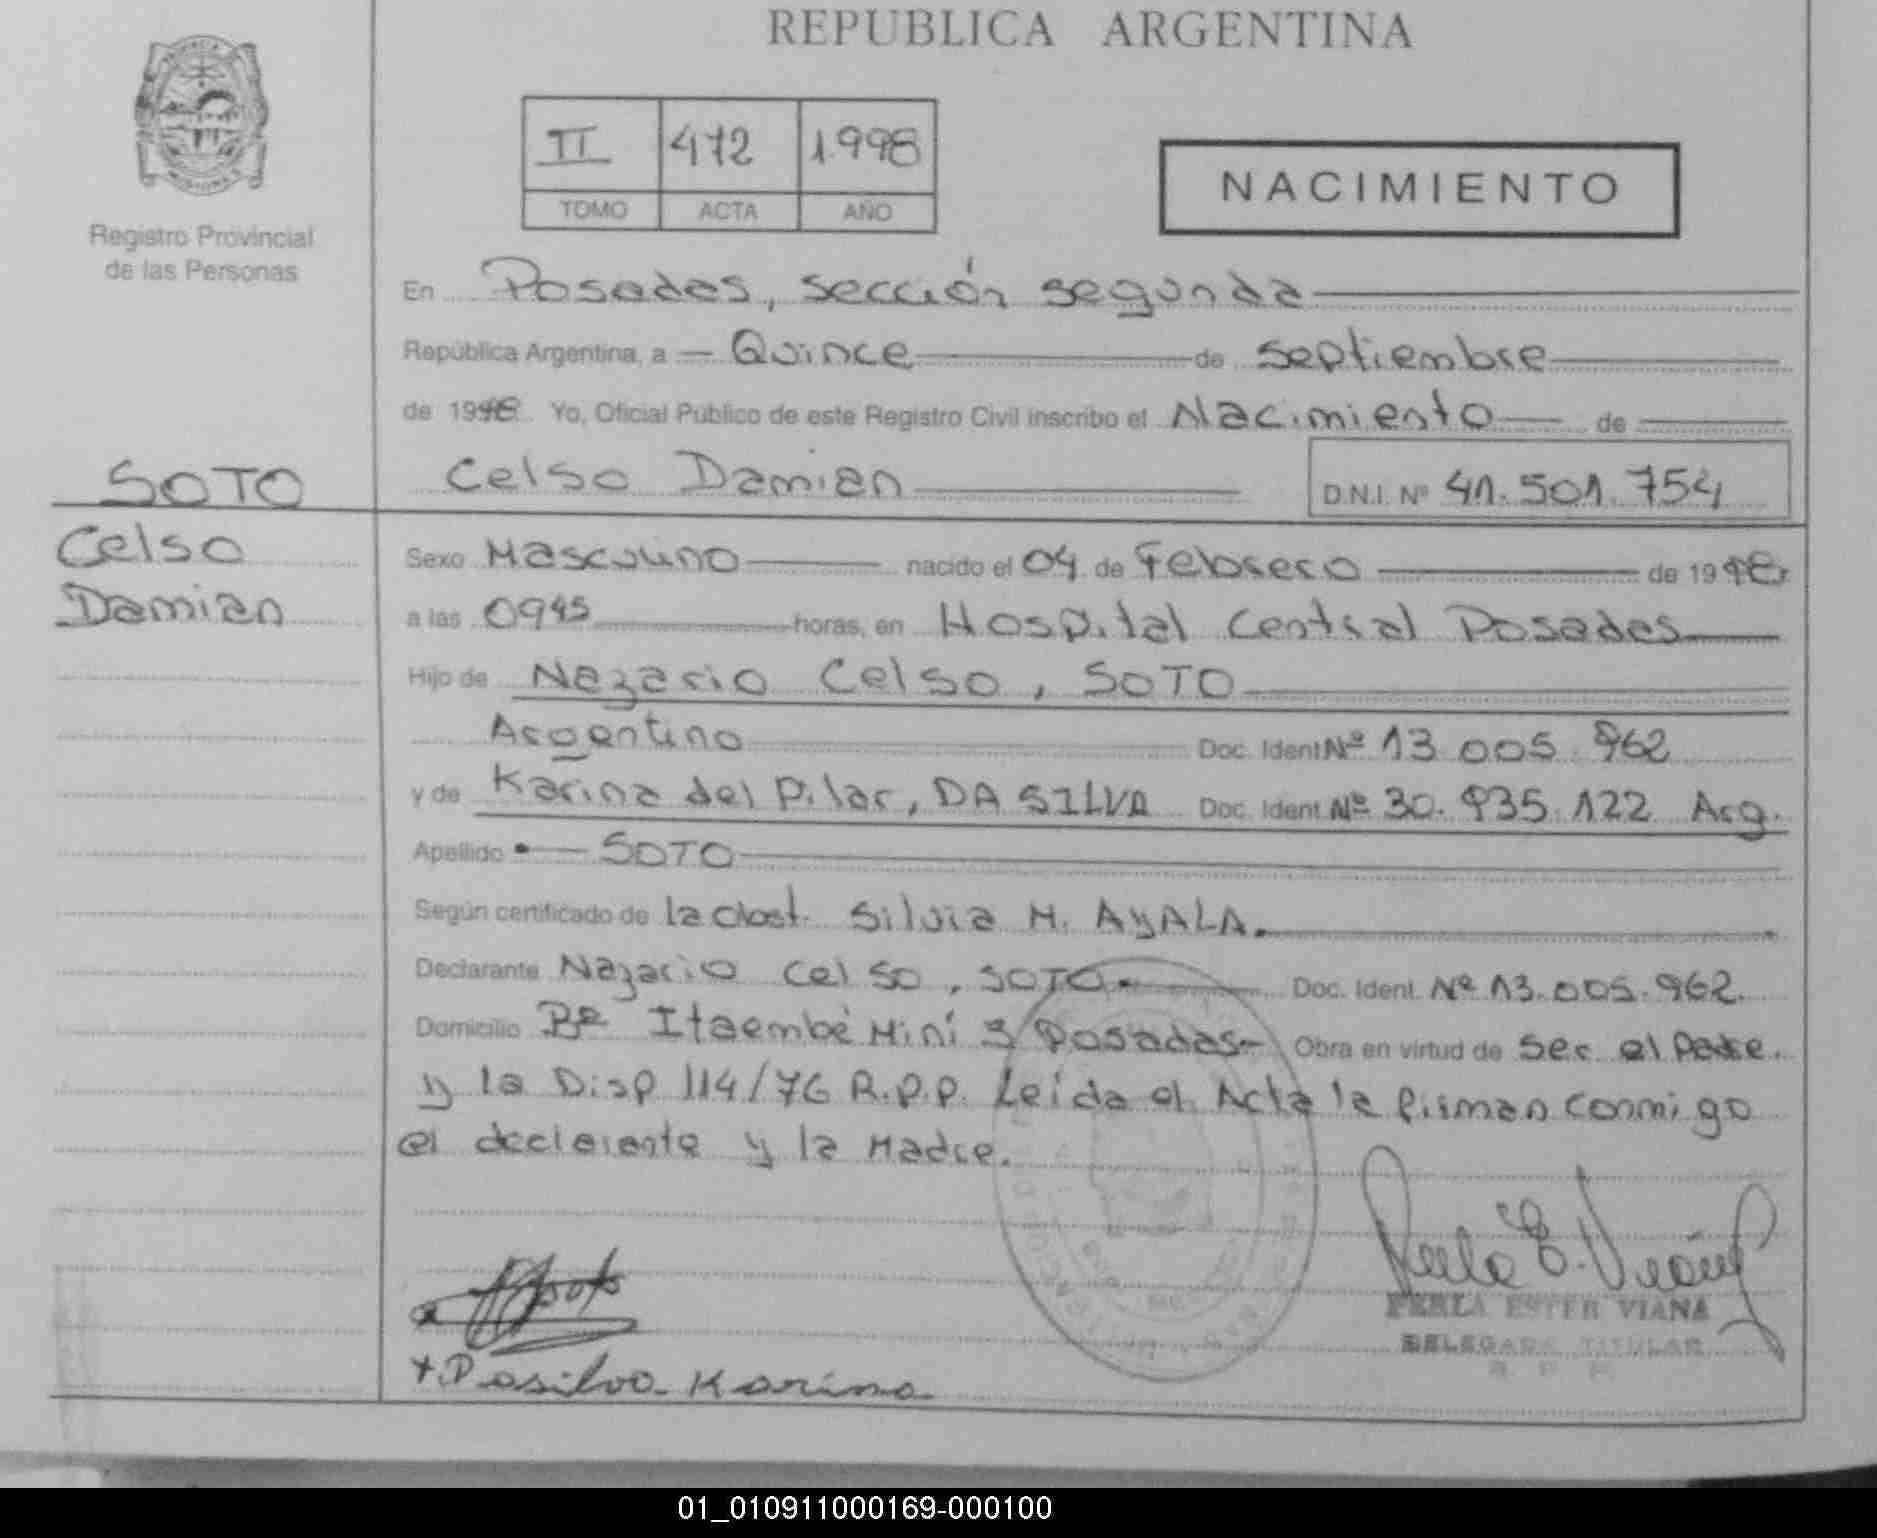 REPUBLICA ARGENTINA
PROVINCIA
MISIONES
Registro Provincial
de las Personas
II 472 1998
TOMO ACTA AÑO
NACIMIENTO
En Posadas, sección segunda
República Argentina, a Quince de septiembre
de 1998 Yo, Oficial Público de este Registro Civil inscribo el Nacimiento de
SOTO Celso Damian D.N.I. Nº 41.501.754
Celso
Damian
Sexo Masculino nacido el 04 de Febrero de 1998
a las 0945 horas, en Hospital Central Posadas
Hijo de Nazario Celso, SOTO
Argentino Doc. Ident Nº 13.005.962
y de Karina del Pilar, DA SILVA Doc. Ident Nº 30.935.122 Arg.
Apellido SOTO
Según certificado de la obst. Silvia M. AyALA.
Declarante Nazario Celso, SOTO. Doc. Ident. Nº 13.005.962.
Domicilio Bº Itaembé Miní 3 Posadas- Obra en virtud de ser el Padre.
y la Disp 114/76 R.P.P. Leída el Acta la firman conmigo
el declarante y la Madre.
Soto
Perla E. Viana
PERLA ESTER VIANA
DELEGADA TITULAR
R. P. P.
x Dasilva Karina
01_010911000169-000100